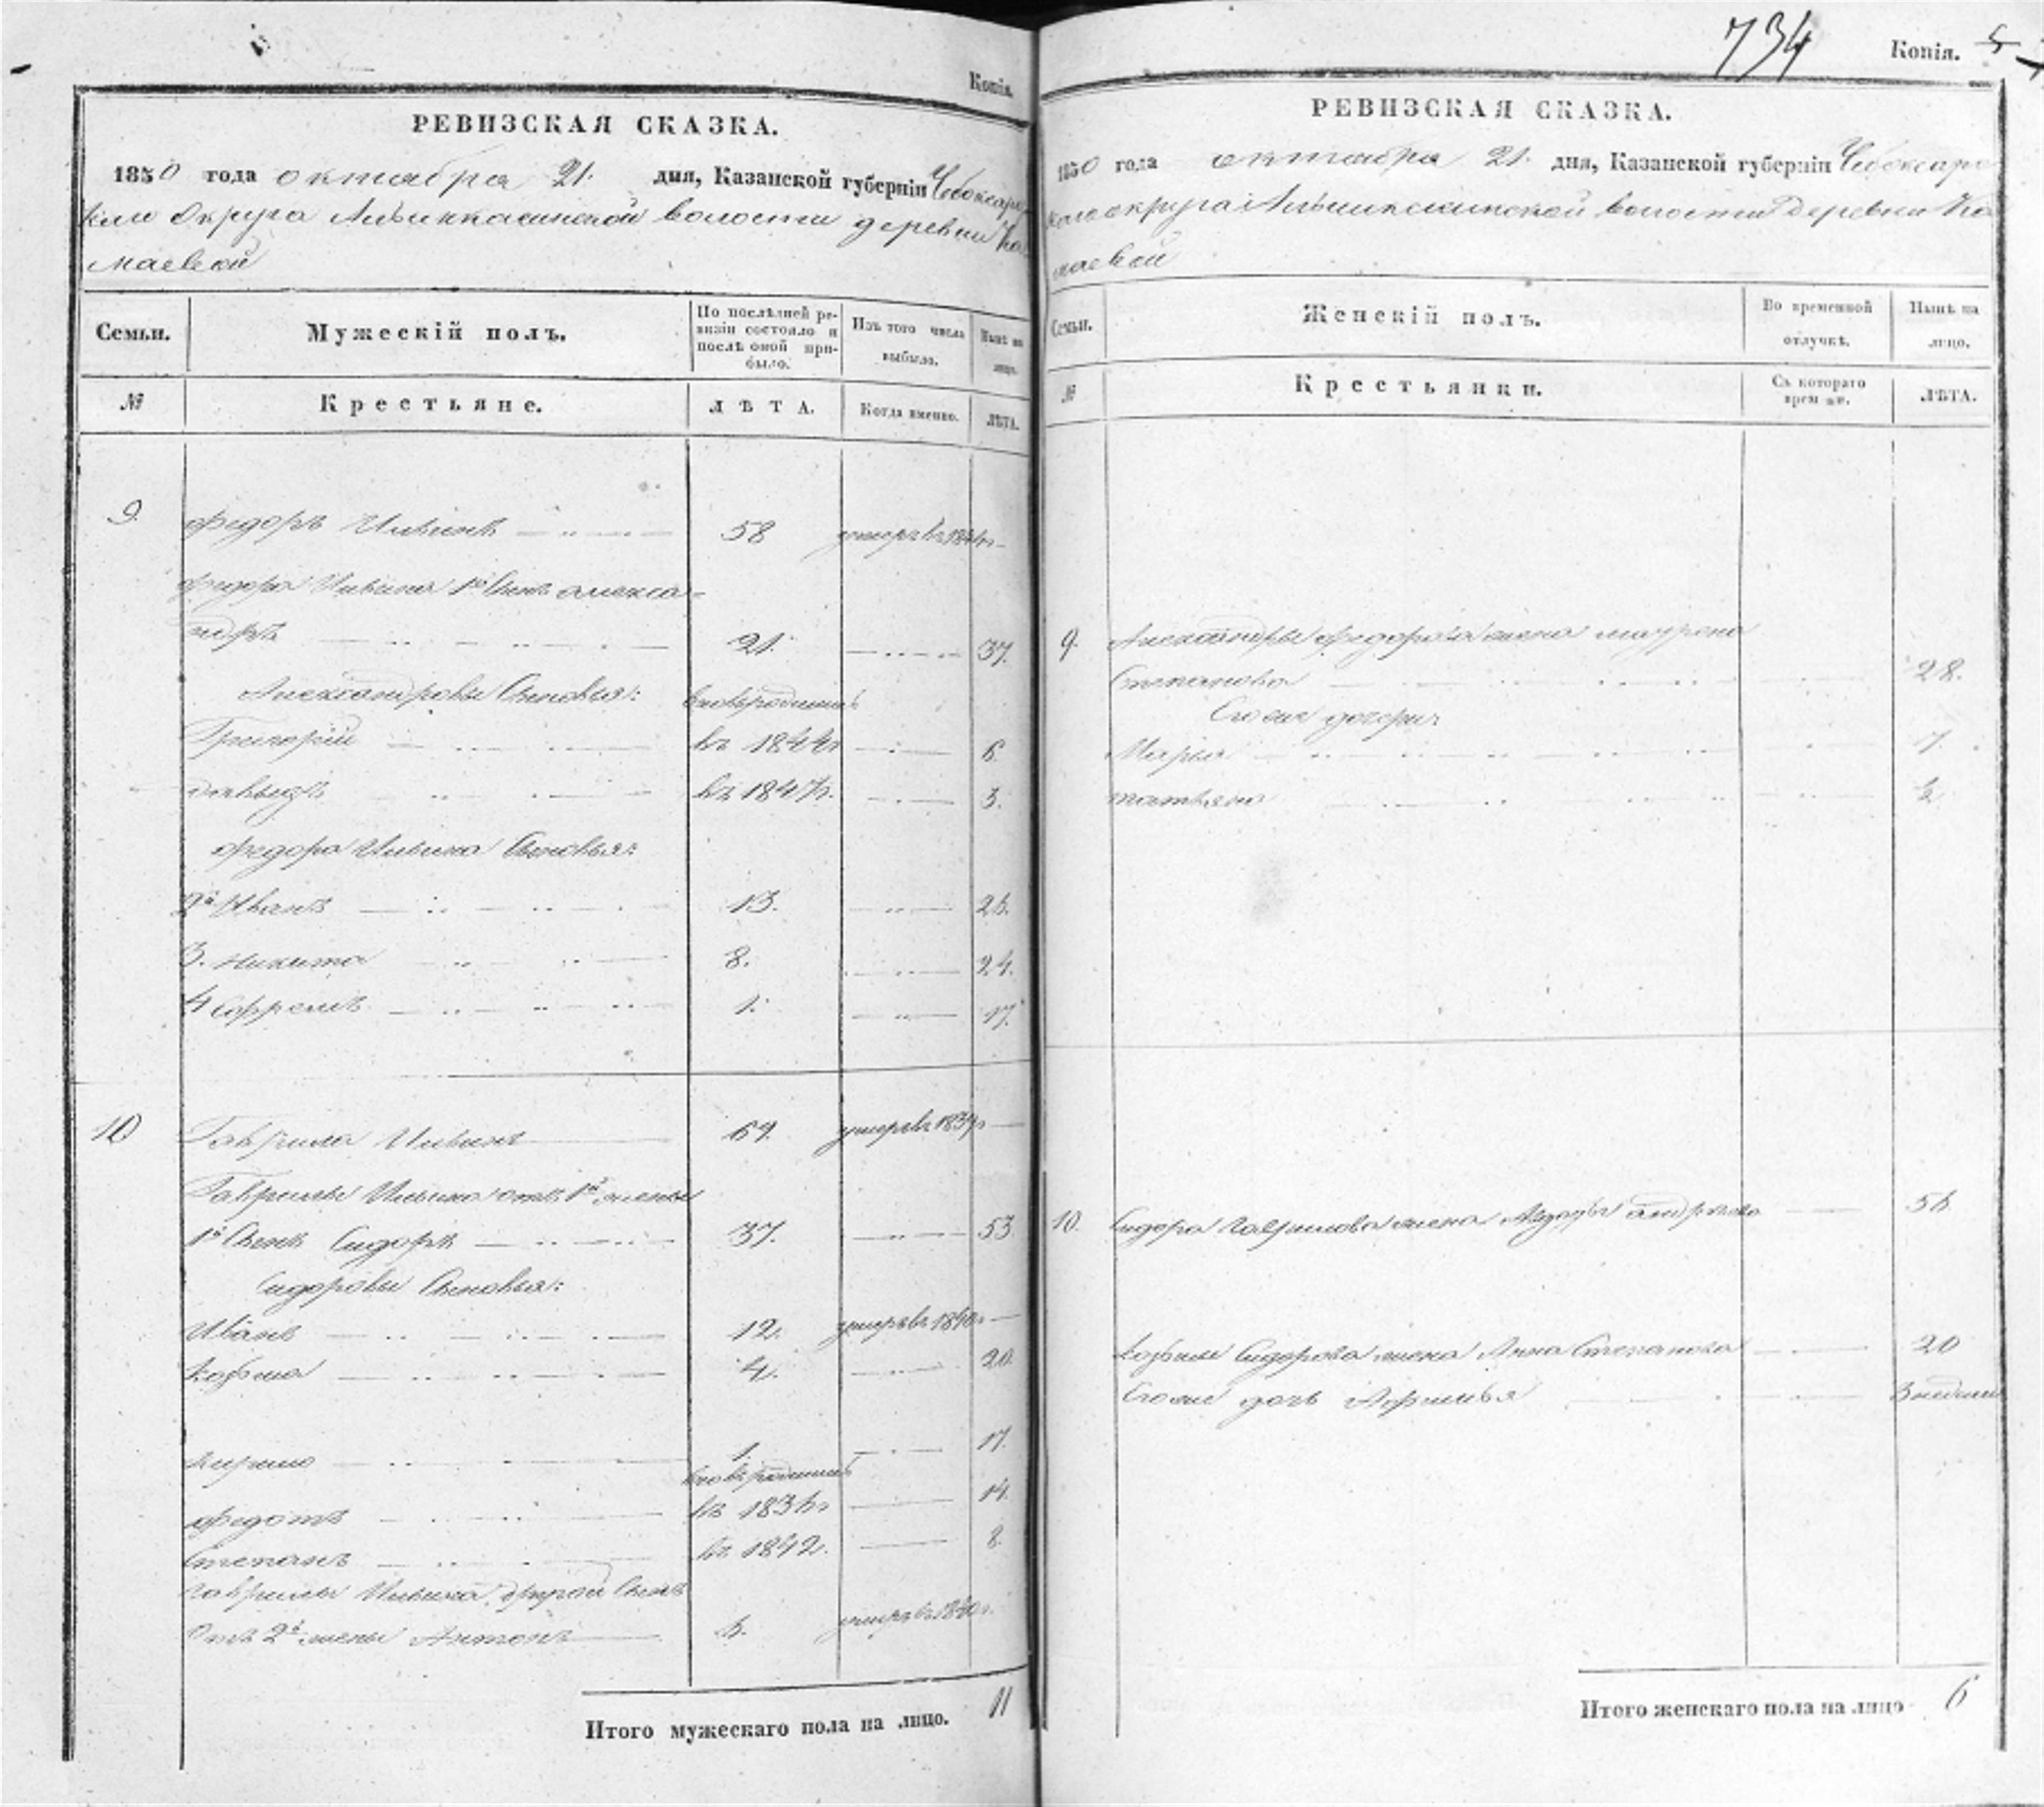 Копія.
РЕВИЗСКАЯ СКАЗКА.
1850 года октября 21. дня, Казанской губерніи Чебоксар
округа волости деревни Ка
маевой
Семьи. Мужескій полъ. По послѣдней ре-
визіи состояло и
послѣ оной при-
было. Изъ того числа
выбыло. Нынѣ на
лицо.
№ Крестьяне. ЛѢТА. Когда именно. ЛѢТА.
9. Федоръ Ивинъ 58
Федора Ивина 1й Сынъ Алекса-
ндръ 21. 37.
Александровы Сыновья: вновьрожденный
Григорій въ 1844г 6.
Давыдъ въ 1847г. 3.
Федора Ивина Сыновья:
2й Иванъ 13.
3. Никита 8. 24.
4 Ефремъ 1. 17.
10 Гаврила Ивинъ умеръ въ 1839г
Гаврилы Ивина отъ 1й жены
1й Сынъ Сидоръ 37. 53
Сидоровы Сыновья:
Иванъ 12. умеръ въ 1840г
Козьма 4. 20.
Кирило 1. 17.
вновьрожденный
Федотъ 14.
Степанъ въ 1842. 8.
Гаврилы Ивина другой Сынъ
отъ 2й жены Антонъ умеръ въ
Итого мужескаго пола на лицо. 11
734 Копія. 5
РЕВИЗСКАЯ СКАЗКА.
1850 года октября 21. дня, Казанской губерніи Чебоксарс
каго округа волости деревни Ка
маевой
Семьи. Женскій полъ. Во временной
отлучкѣ. Нынѣ на
лицо.
№ Крестьянки. Съ котораго
времени. ЛѢТА.
9. Александры Федорова жена Маурена
Степанова 28.
Его же дочери:
Марья 7.
Татьяна
10. Сидора Гаврилова жена
Козьмы Сидорова жена Анна Степанова 20
Его же дочь 3 недели
Итого женскаго пола на лицо 6